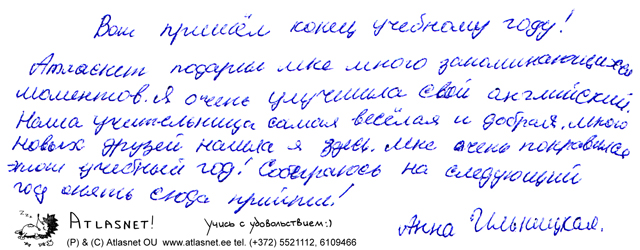 Вот пришёл конец учебному году!
Атласнет подарил мне много запоминающихся
моментов. Я очень улучшила свой английский.
Наша учительница самая весёлая и добрая, много
новых друзей нашла я здесь. Мне очень понравился
этот учебный год! Собираюсь на следующий
год опять сюда прийти!
ATLASNET! Учись с удовольствием:)
Анна Ильницкая.
(P) & (C) Atlasnet OU www.atlasnet.ee tel. (+372) 5521112, 6109466